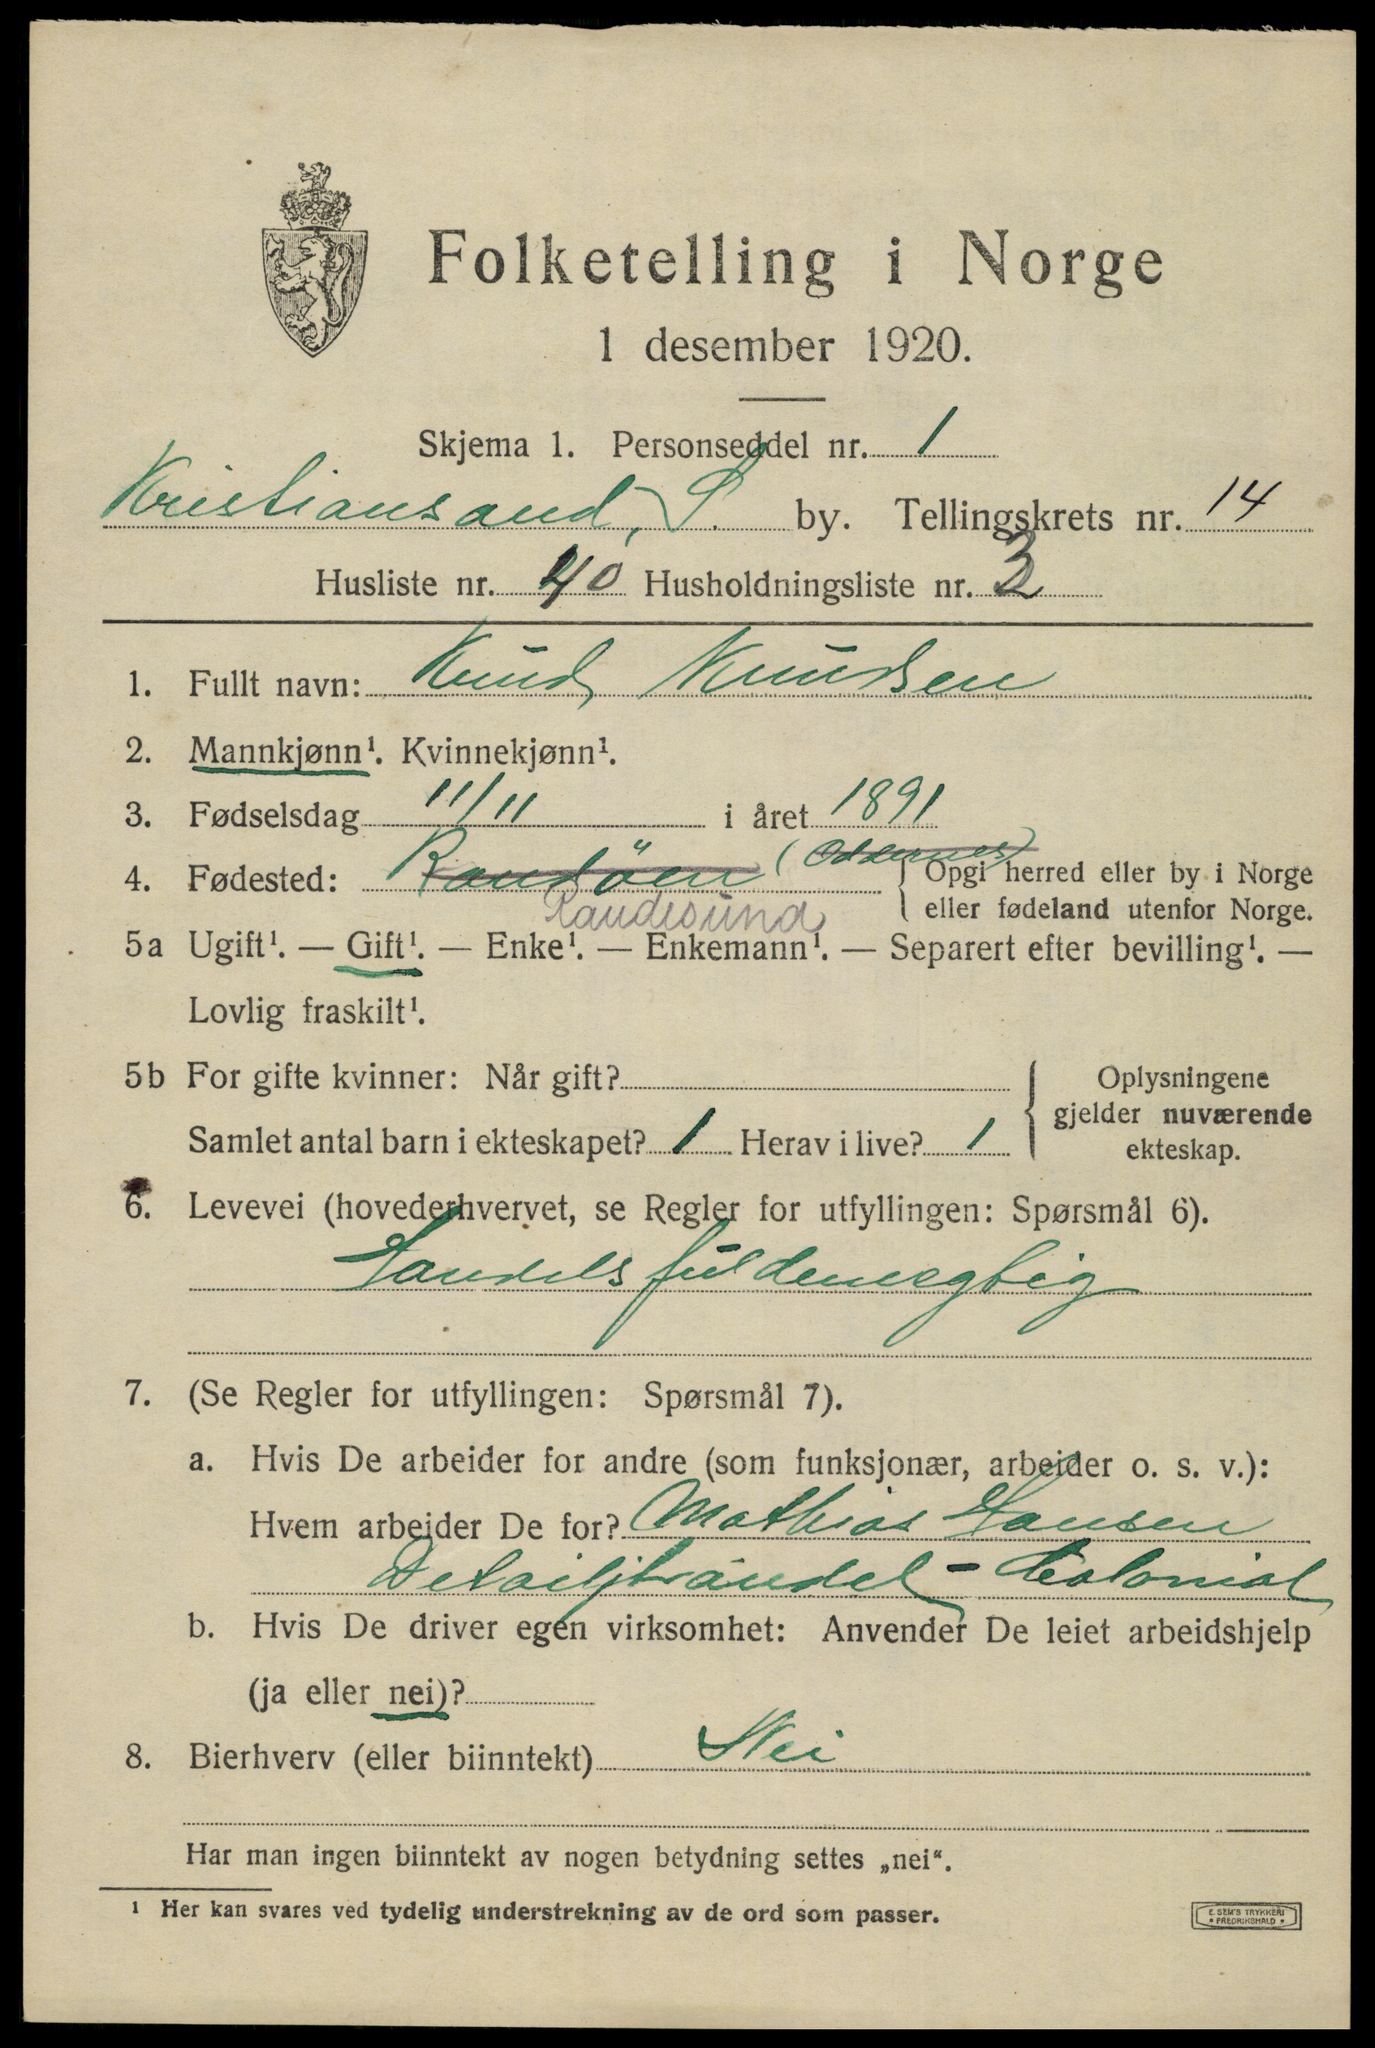 Folketelling i Norge
1 desember 1920.
Skjema 1. Personseddel nr. 1
Kristiansand, S. by. Tellingskrets nr. 14
Husliste nr. 40 Husholdningsliste nr. 3
1. Fullt navn: Knud Knudsen
2. Mannkjønn¹. Kvinnekjønn¹.
3. Fødselsdag 11/11 i året 1891
4. Fødested: Randöen (Oddernes) { Opgi herred eller by i Norge
Randesund eller fødeland utenfor Norge.
5a Ugift¹. — Gift¹. — Enke¹. — Enkemann¹. — Separert efter bevilling¹. —
Lovlig fraskilt¹.
5b For gifte kvinner: Når gift? Oplysningene
gjelder nuværende
Samlet antal barn i ekteskapet? 1 Herav i live? 1 ekteskap.
6. Levevei (hovederhvervet, se Regler for utfyllingen: Spørsmål 6).
Handelsfuldmegtig
7. (Se Regler for utfyllingen: Spørsmål 7).
a. Hvis De arbeider for andre (som funksjonær, arbeider o. s. v.):
Hvem arbeider De for? Mathias Hansen
Detailjhandel - Colonial
b. Hvis De driver egen virksomhet: Anvender De leiet arbeidshjelp
(ja eller nei)?
8. Bierhverv (eller biinntekt) Nei
Har man ingen biinntekt av nogen betydning settes „nei“.
1 Her kan svares ved tydelig understrekning av de ord som passer.
E. SEM'S TRYKKERI
• FREDRIKSHALD •